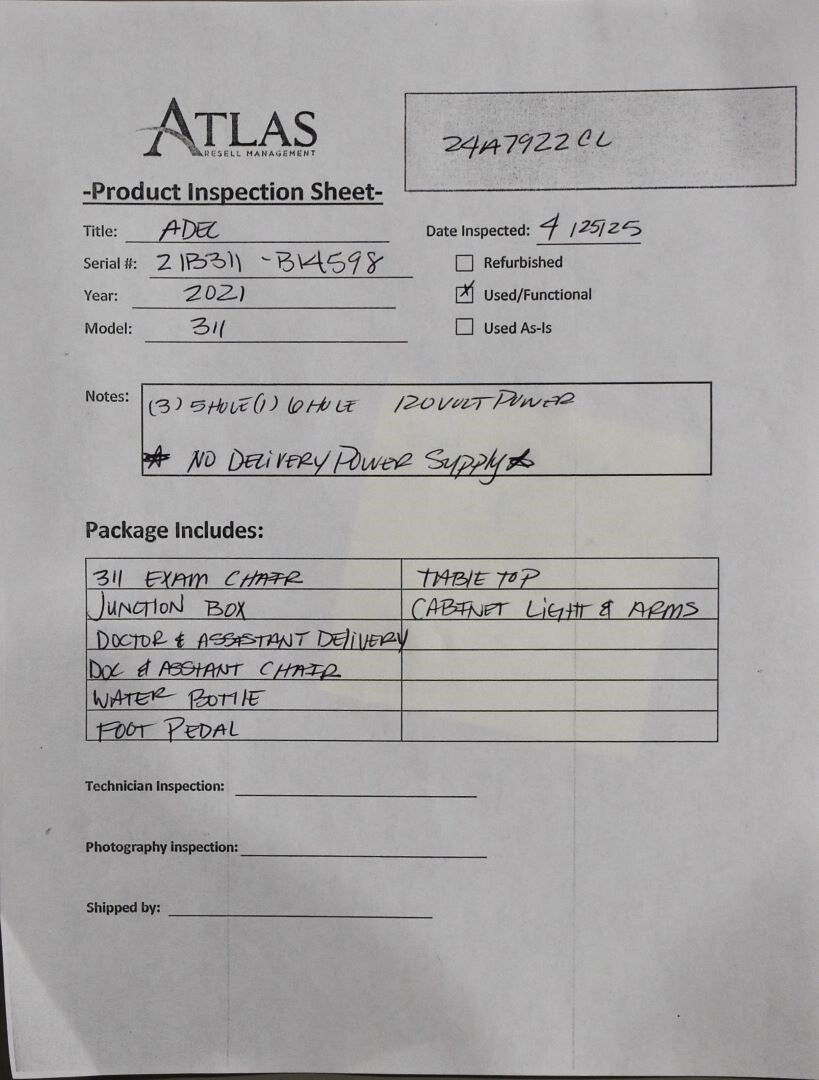 ATLAS
RESELL MANAGEMENT
24A7922CL
-Product Inspection Sheet-
Title: ADEC
Date Inspected: 4/25/25
Serial #: 21B311 -BK4598
Refurbished
Year: 2021
Used/Functional
Model: 311
Used As-Is
Notes: (3) 5 HOLE (1) 6 HOLE 120 VOLT POWER
NO DELIVERY POWER SUPPLY
Package Includes:
311 EXAM CHAIR TABLE TOP
JUNCTION BOX CABINET LIGHT & ARMS
DOCTOR & ASSISTANT DELIVERY
DOC & ASSIANT CHAIR
WATER BOTTLE
FOOT PEDAL
Technician Inspection:
Photography inspection:
Shipped by: